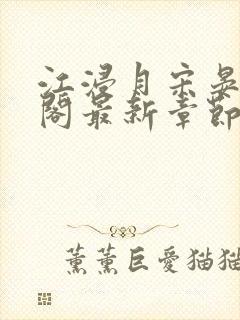 江浸月宋晏
阁最新章節
薰薰巨愛猫猫